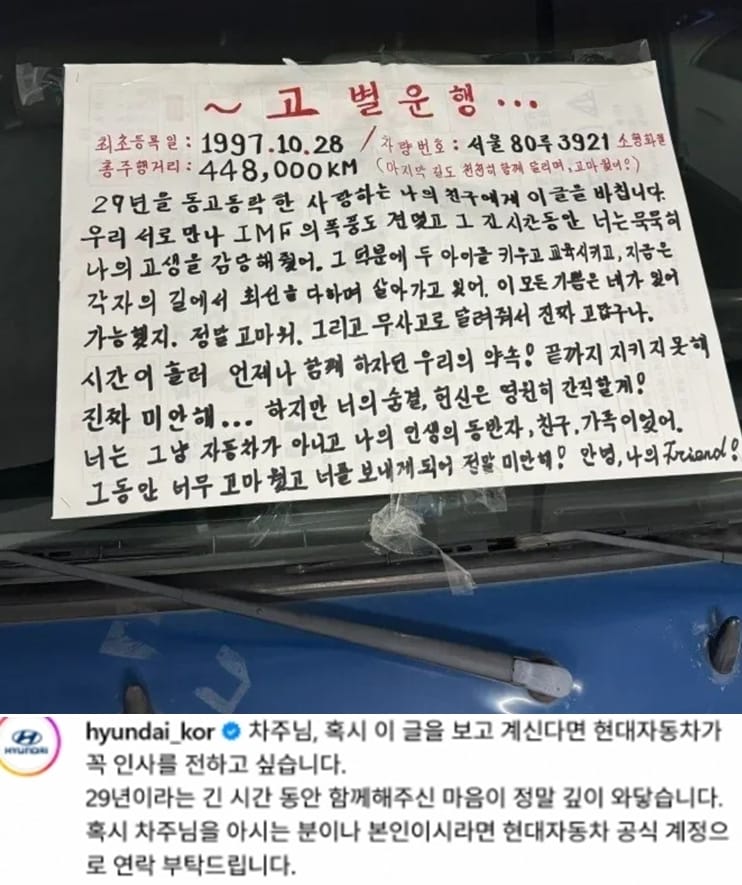 ~ 고 별 운 행 ...
최초등록일 : 1997.10.28 / 차량번호 : 서울 80루 3921 소형화물
총주행거리 : 448,000KM (마지막 길도 천천히 함께 달리며, 고마웠어!)
29년을 동고동락 한 사랑하는 나의 친구에게 이 글을 바칩니다.
우리 서로 만나 IMF의 폭풍도 견뎠고 그 긴 시간동안 너는 묵묵히
나의 고생을 감당해 줬어. 그 덕분에 두 아이를 키우고 교육시키고, 지금은
각자의 길에서 최선을 다하며 살아가고 있어. 이 모든 기쁨은 네가 있어
가능했지. 정말 고마워. 그리고 무사고로 달려줘서 진짜 고맙구나.
시간이 흘러 언제나 함께 하자던 우리의 약속! 끝까지 지키지 못해
진짜 미안해... 하지만 너의 숨결, 헌신은 영원히 간직할게!
너는 그냥 자동차가 아니고 나의 인생의 동반자, 친구, 가족이었어.
그동안 너무 고마웠고 너를 보내게 되어 정말 미안해! 안녕, 나의 Friend!
HYUNDAI
hyundai_kor 차주님, 혹시 이 글을 보고 계신다면 현대자동차가
꼭 인사를 전하고 싶습니다.
29년이라는 긴 시간 동안 함께해주신 마음이 정말 깊이 와닿습니다.
혹시 차주님을 아시는 분이나 본인이시라면 현대자동차 공식 계정으
로 연락 부탁드립니다.